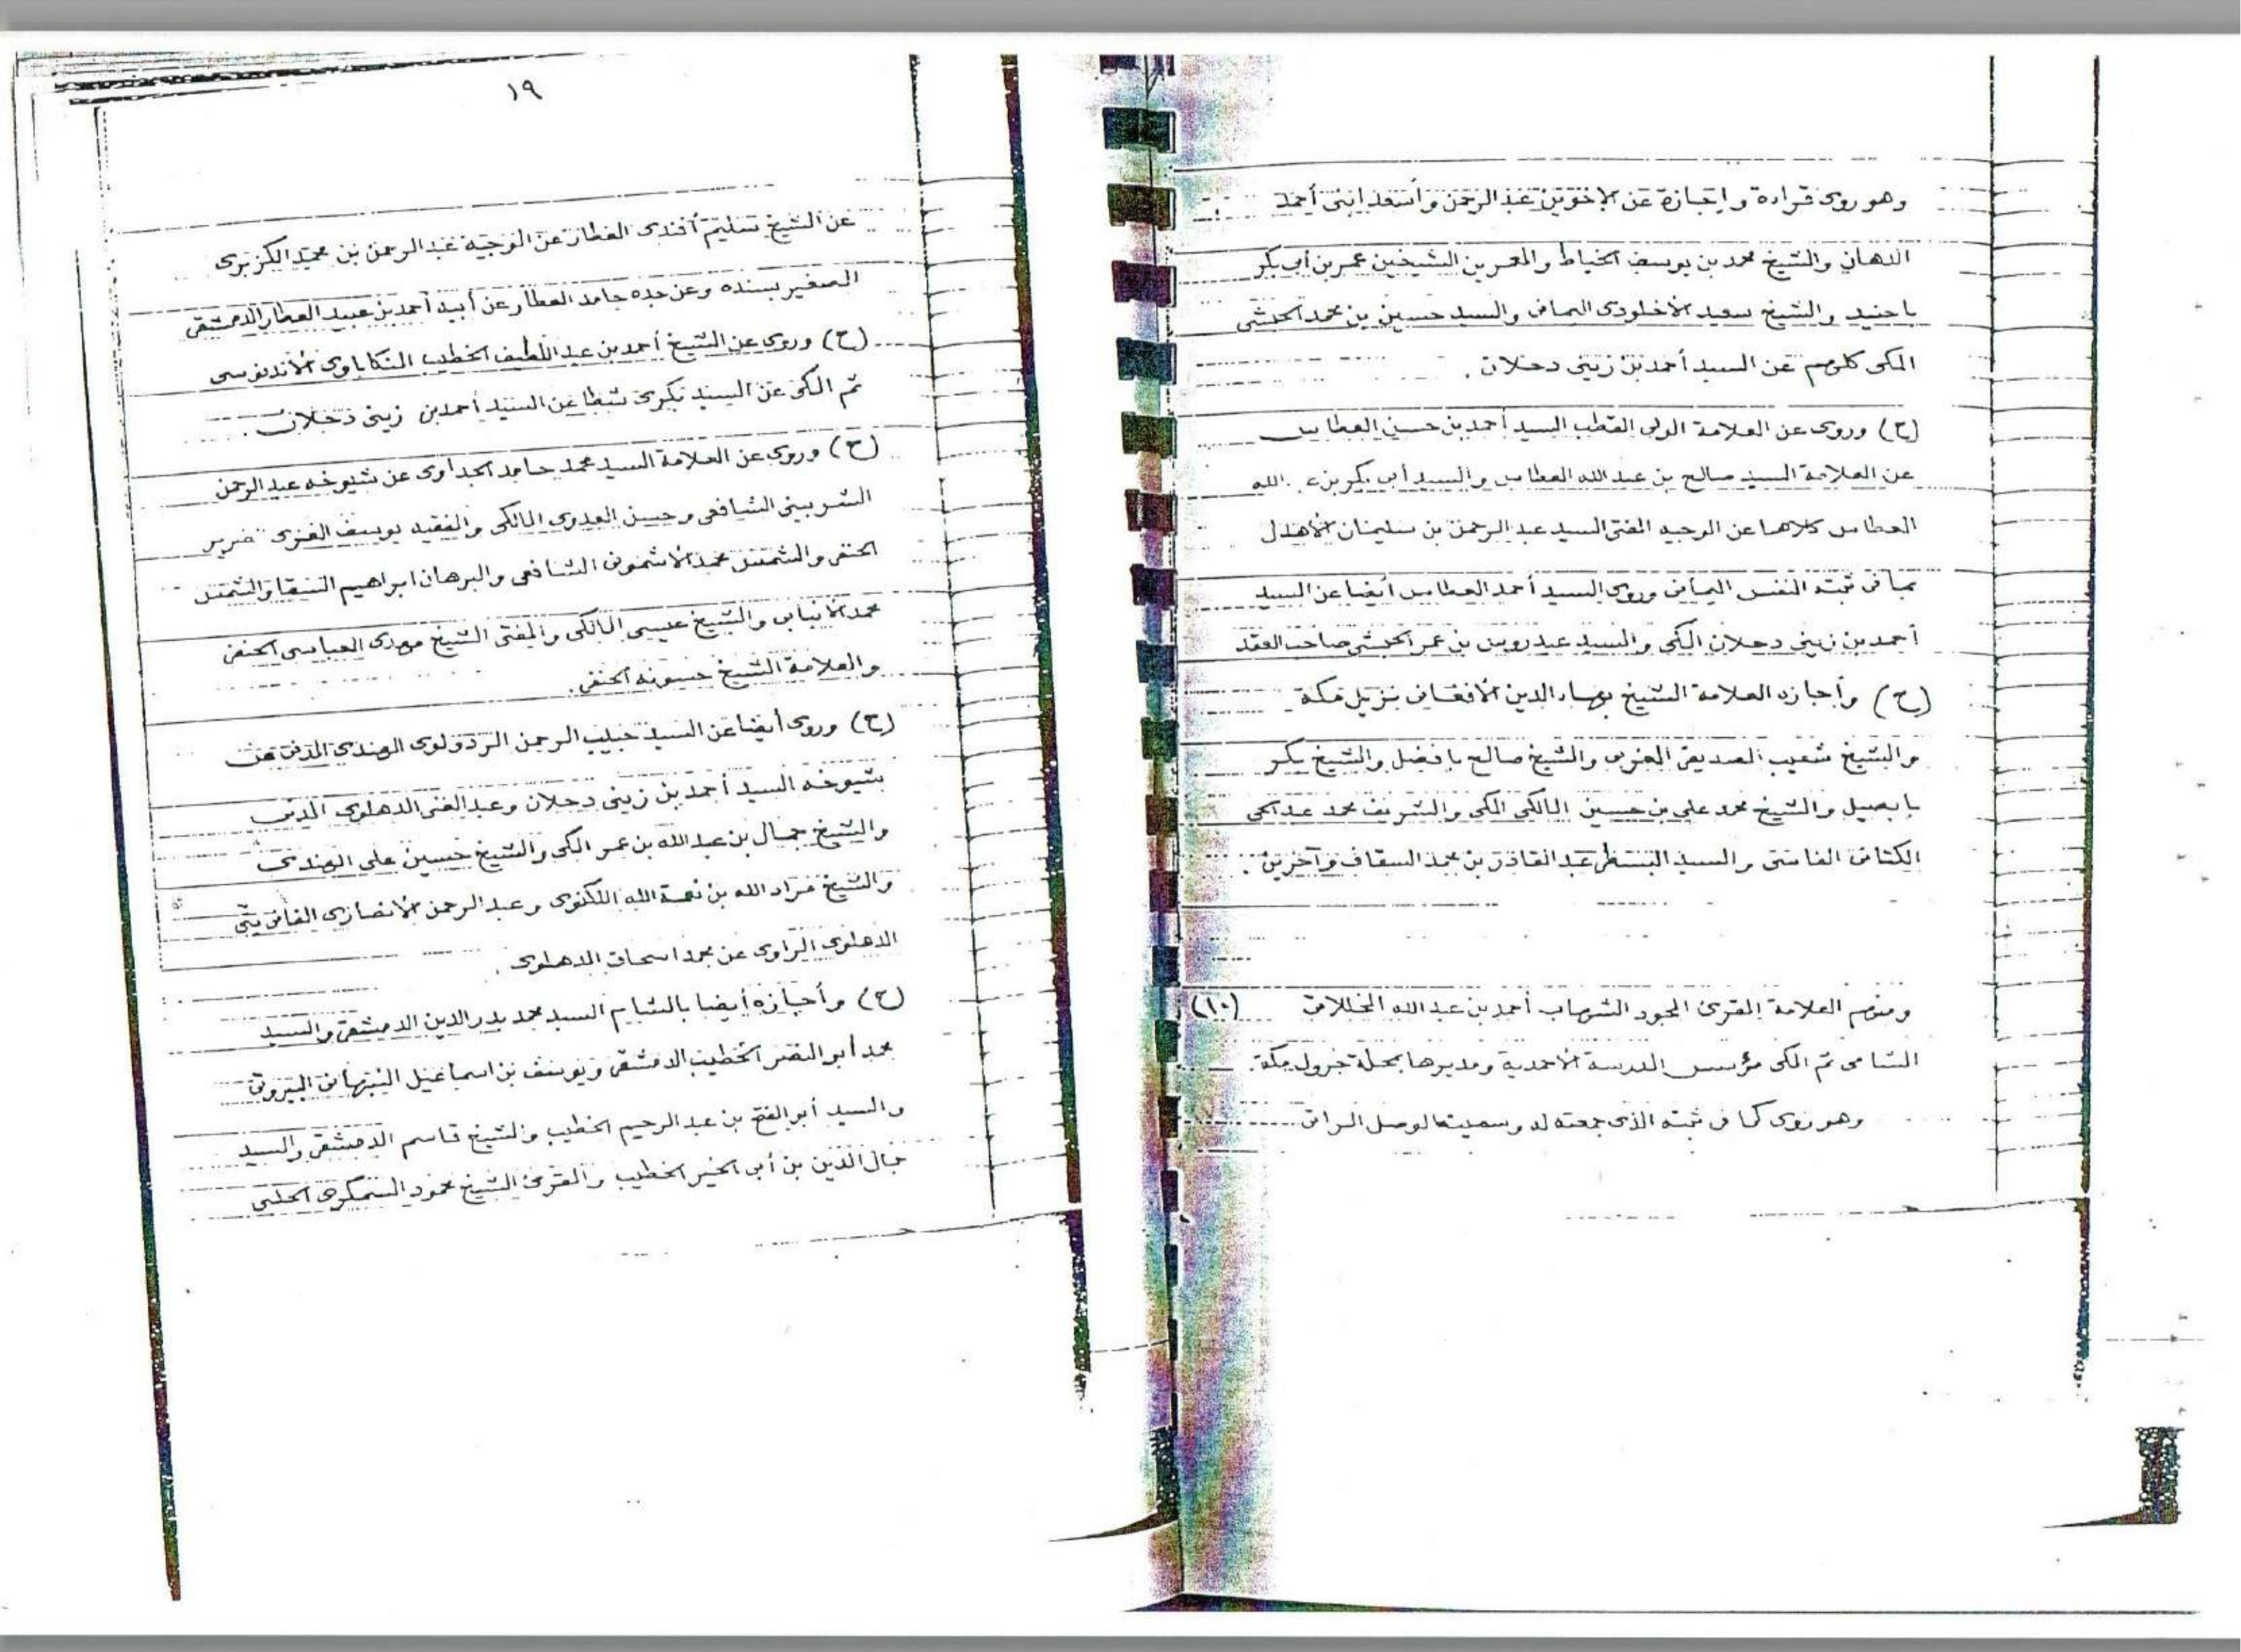 وهو روى قراءة وإجازة عن الأخوين عبد الرحمن وأسعد ابنى أحمد
الدهان والشيخ محمد بن يوسف الخياط والمعمرين الشيخين عمر بن أبى بكر
باجنيد والشيخ سعيد الأخلودى اليمانى والسيد حسين بن محمد الحبشى
المكى كلهم عن السيد أحمد بن زينى دحلان .
(ح) وروى عن العلامة الولى القطب السيد أحمد بن حسن العطاس
عن العلامة السيد صالح بن عبد الله العطاس والسيد أبى بكر بن الله
العطاس كلاهما عن الوجيه المفتى السيد عبد الرحمن بن سليمان الأهدل
بما فى ثبته النفس اليمانى وروى السيد أحمد العطاس أيضا عن السيد
أحمد بن زينى دحلان المكى والسيد عيدروس بن عمر الحبشى صاحب العقد
(ح) وأجازه العلامة الشيخ بهاء الدين الأفغانى نزيل مكة
والشيخ شعيب الصديقى المغربى والشيخ صالح بافضل والشيخ بكر
بابصيل والشيخ محمد على بن حسين المالكى المكى والشريف محمد عبد الحى
الكتانى الفاسى والسيد عبد القادر بن محمد السقاف وآخرين .
ومنهم العلامة المقرئ المجود الشهاب أحمد بن عبد الله المخللاتى (١٠)
الشامى ثم المكى مؤسس المدرسة الأحمدية ومديرها بمحلة جرول بمكة .
وهو روى كما فى ثبته الذى جمعته له وسميته الوصل الراتى
١٩
عن الشيخ سليم أفندى العطار عن الوجيه عبد الرحمن بن محمد الكزبرى
الصغير بسنده وعن جده حامد العطار عن أبيه أحمد بن عبيد العطار الدمشقى
(ح) وروى عن الشيخ أحمد بن عبد اللطيف الخطيب المنكاباوى الأندنوسى
ثم المكى عن السيد بكرى شطا عن السيد أحمد بن زينى دحلان .
(ح) وروى عن العلامة السيد محمد حامد الجداوى عن شيوخه عبد الرحمن
الشربينى الشافعى وحسن العدوى المالكى والفقيه يوسف الغزى ضرير
الحنفى والشمس محمد الأشمونى الشافعى والبرهان ابراهيم السقا والشمس
محمد الأنبابى والشيخ عيسى المالكى والمفتى الشيخ مهدى العباسى الحنفى
والعلامة الشيخ حسونه الحنفى .
(ح) وروى أيضا عن السيد حبيب الرحمن الردولوى الهندى المدنى عن
شيوخه السيد أحمد بن زينى دحلان وعبد الغنى الدهلوى المدنى
والشيخ جمال بن عبد الله بن عمر المكى والشيخ حسين على الهندى
والشيخ مراد الله بن نعمة الله اللكنوى وعبد الرحمن الأنصارى الفانى بتى
الدهلوى الراوى عن محمد اسحاق الدهلوى .
(ح) وأجازه أيضا بالشام السيد محمد بدر الدين الدمشقى والسيد
محمد أبو النصر الخطيب الدمشقى ويوسف بن اسماعيل النبهانى البيروتى
والسيد أبو الفتح بن عبد الرحيم الخطيب والشيخ قاسم الدمشقى والسيد
جمال الدين بن أبى الخير الخطيب والمقرئ الشيخ محمود السمكرى الحلبى